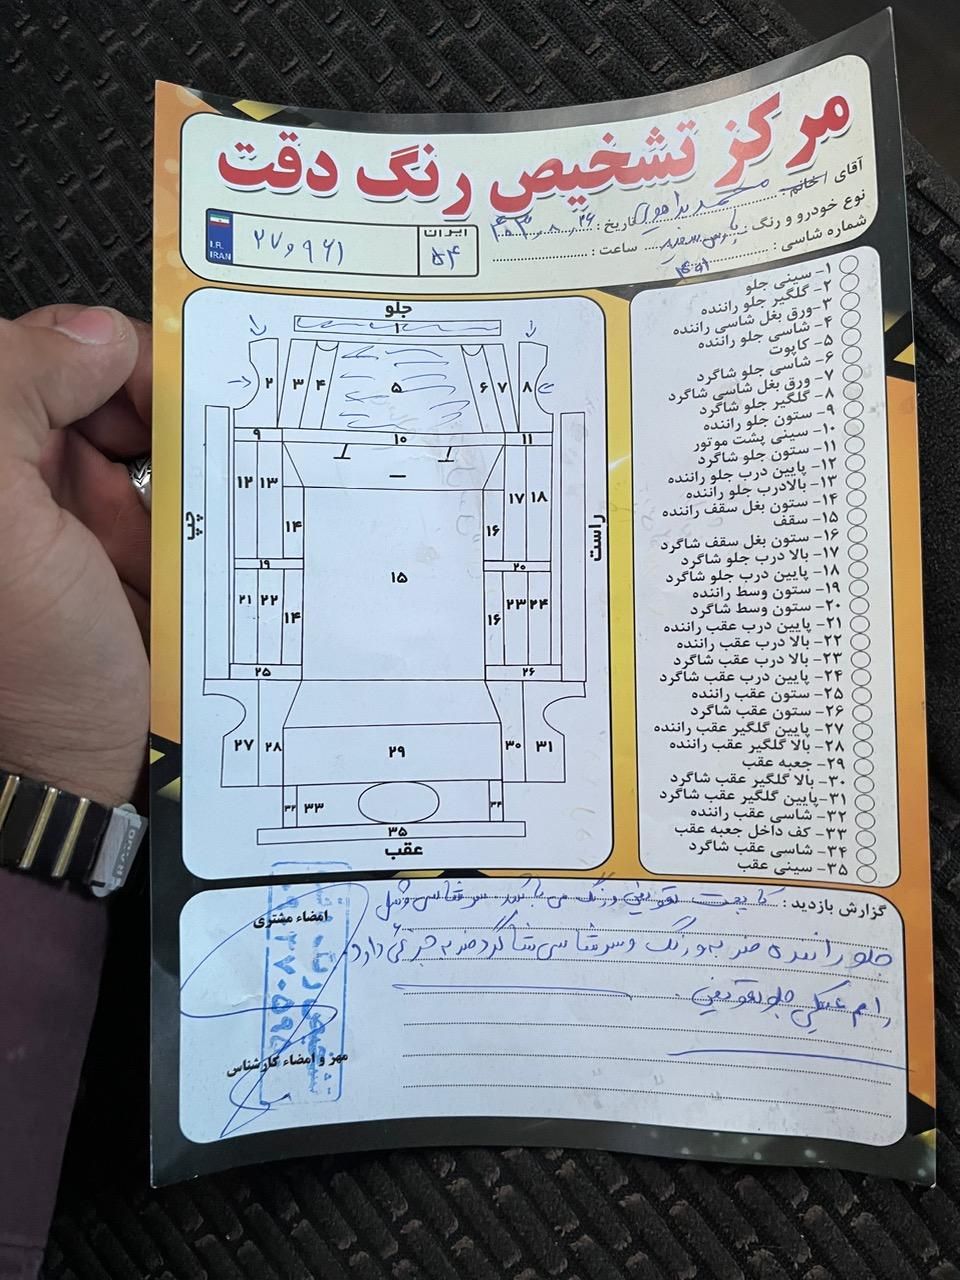 مرکز تشخیص رنگ دقت
آقای / خانم : محمد
نوع خودرو و رنگ :
تاریخ : ۴۰۳،۸،۲۶
شماره شاسی :
ساعت :
I.R.
IRAN
۲۷و۹۶۱
ایران
۵۴
جلو
۱
۲ ۳ ۴ ۵ ۶ ۷ ۸
۹ ۱۰ ۱۱
۱۲ ۱۳ ۱۷ ۱۸
۱۴ ۱۶
چپ
راست
۱۹ ۱۵ ۲۰
۲۱ ۲۲ ۱۴ ۱۶ ۲۳ ۲۴
۲۵ ۲۶
۲۷ ۲۸ ۲۹ ۳۰ ۳۱
۳۲ ۳۳ ۳۴
۳۵
عقب
۱- سینی جلو
۲- گلگیر جلو راننده
۳-ورق بغل شاسی راننده
۴- شاسی جلو راننده
۵- کاپوت
۶- شاسی جلو شاگرد
۷- ورق بغل شاسی شاگرد
۸- گلگیر جلو شاگرد
۹- ستون جلو راننده
۱۰- سینی پشت موتور
۱۱- ستون جلو شاگرد
۱۲- پایین درب جلو راننده
۱۳- بالادرب جلو راننده
۱۴- ستون بغل سقف راننده
۱۵- سقف
۱۶- ستون بغل سقف شاگرد
۱۷- بالا درب جلو شاگرد
۱۸- پایین درب جلو شاگرد
۱۹- ستون وسط راننده
۲۰- ستون وسط شاگرد
۲۱- پایین درب عقب راننده
۲۲- بالا درب عقب راننده
۲۳- بالا درب عقب شاگرد
۲۴- پایین درب عقب شاگرد
۲۵- ستون عقب راننده
۲۶- ستون عقب شاگرد
۲۷- پایین گلگیر عقب راننده
۲۸- بالا گلگیر عقب راننده
۲۹- جعبه عقب
۳۰- بالا گلگیر عقب شاگرد
۳۱-پایین گلگیر عقب شاگرد
۳۲- شاسی عقب راننده
۳۳- کف داخل جعبه عقب
۳۴- شاسی عقب شاگرد
۳۵- سینی عقب
گزارش بازدید : کاپوت تعویض ورنگ می باشد سرشاسی
جلو راننده ضربه ورنگ وسرشاسی شاگرد ضربه جزئی دارد
رام جلو تعویض
امضاء مشتری
مهر و امضاء کارشناس